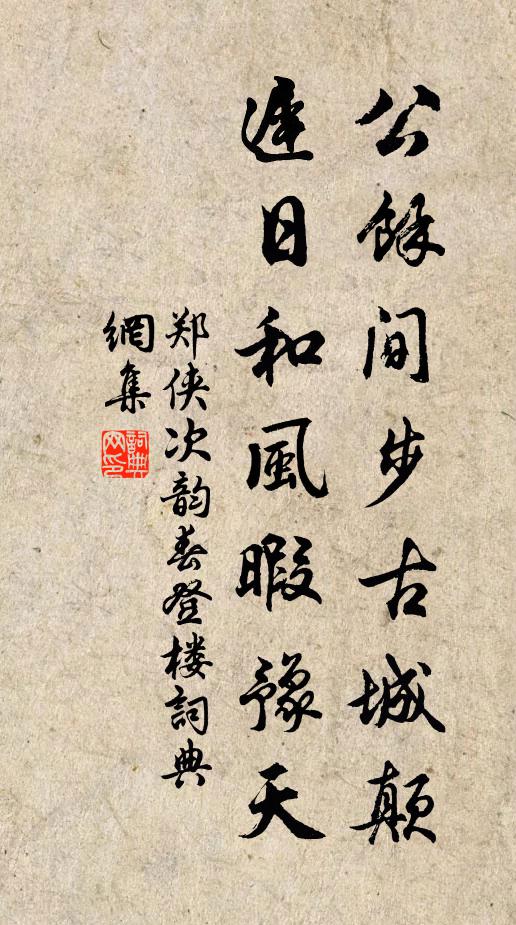 公餘间步古城顛
遲日和風暇豫天
郑侠次韵春登楼詞典
網集
詞典
网印